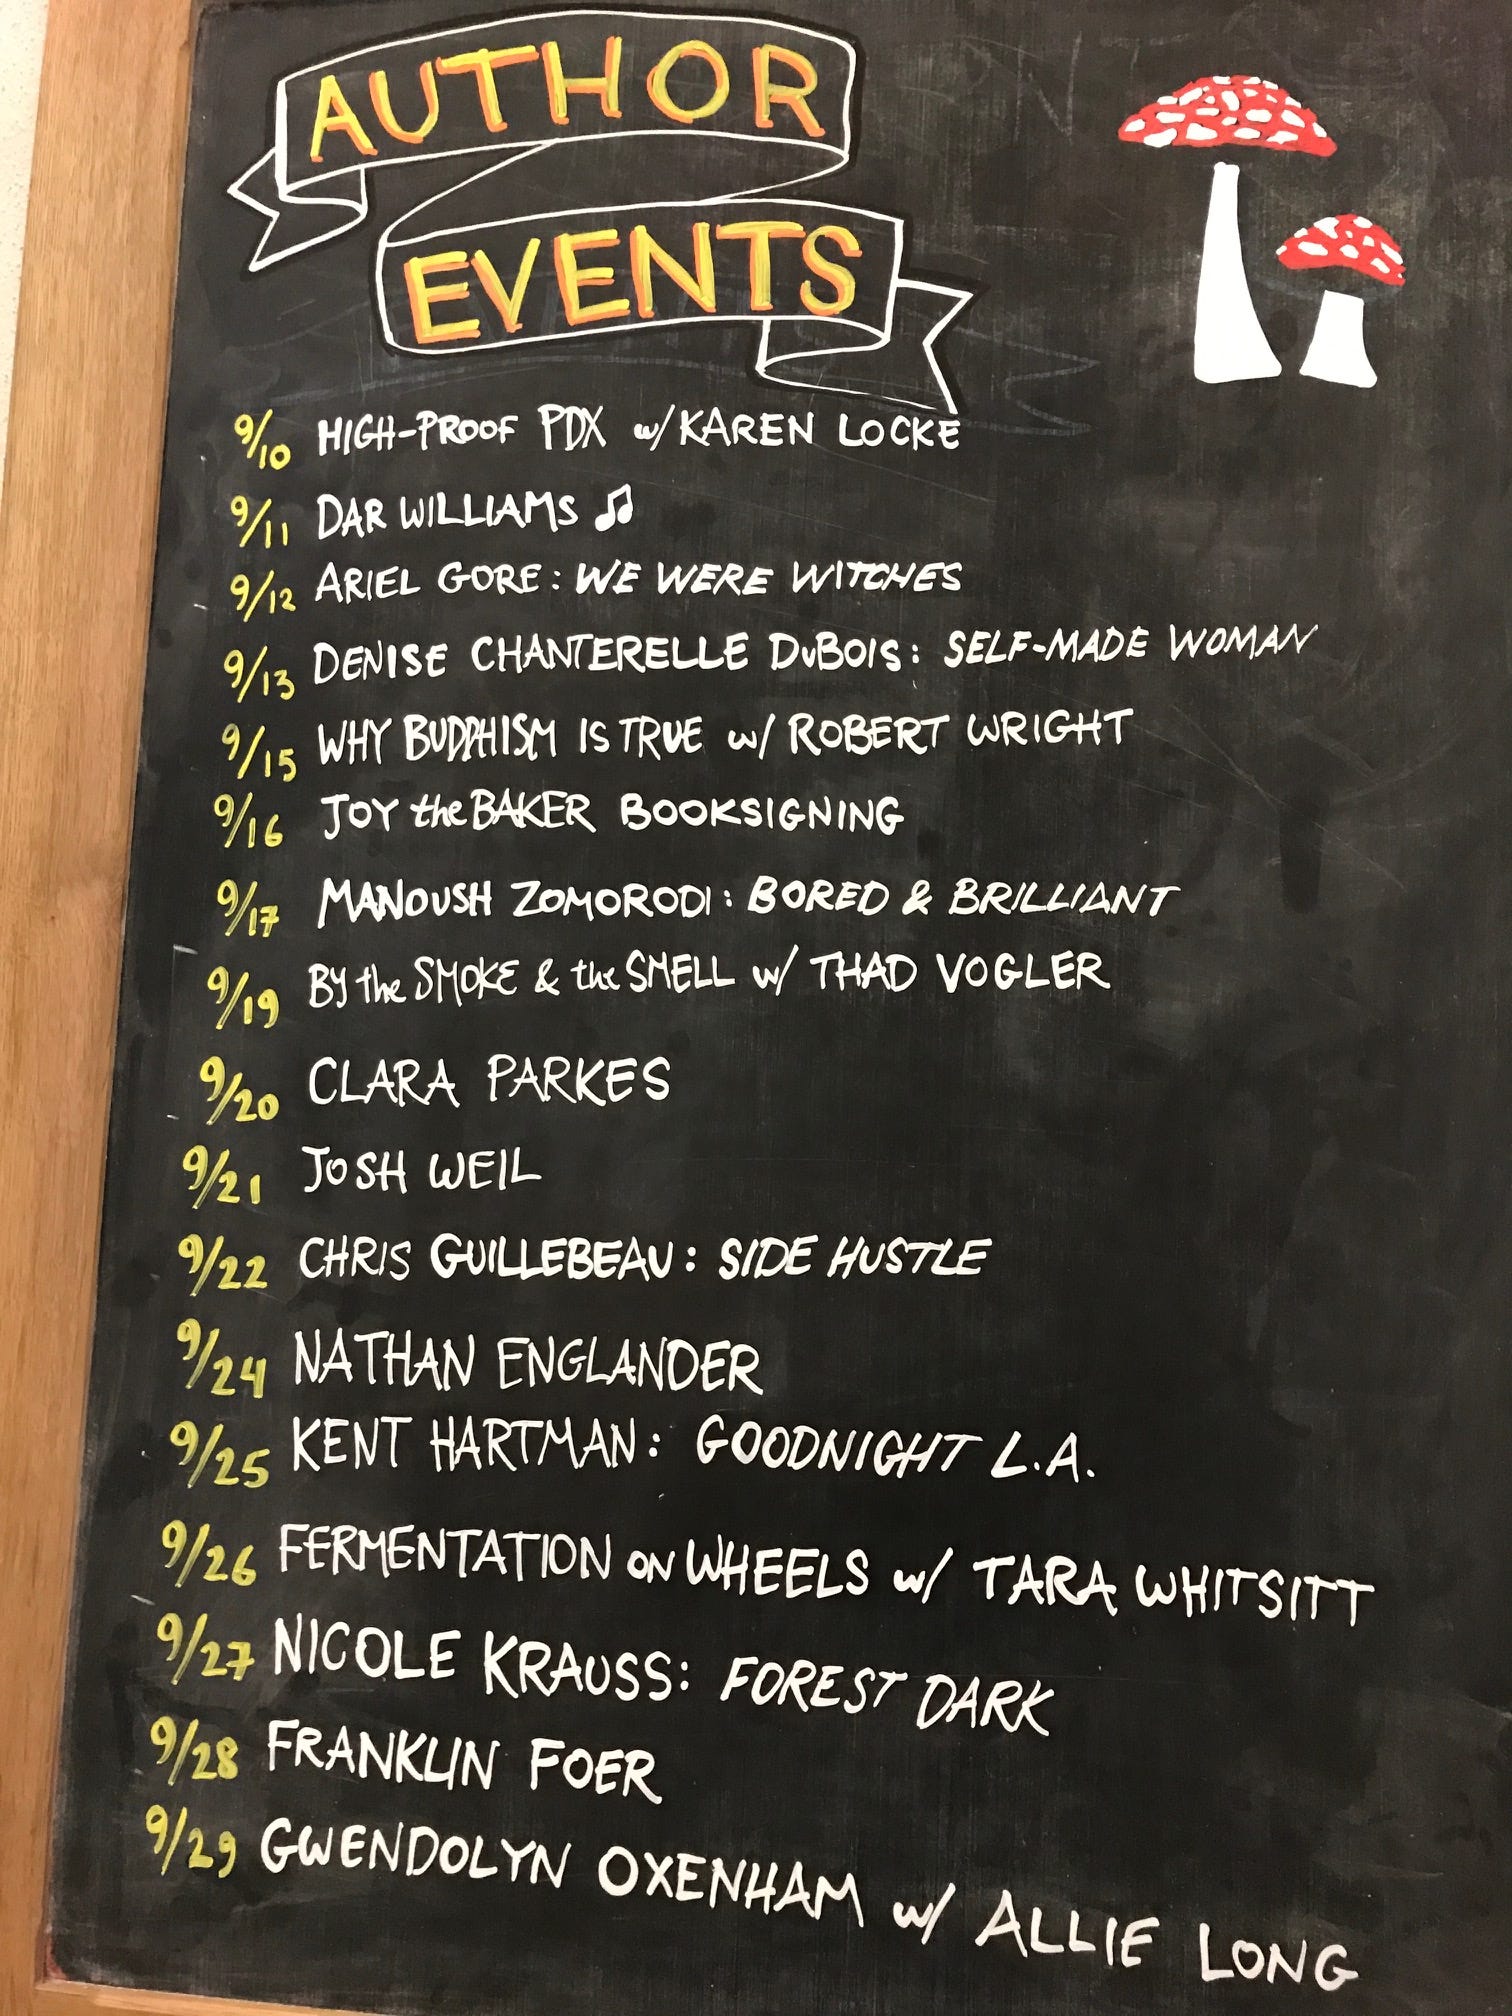 AUTHOR
EVENTS
9/10 HIGH-PROOF PDX w/ KAREN LOCKE
9/11 DAR WILLIAMS ♫
9/12 ARIEL GORE: WE WERE WITCHES
9/13 DENISE CHANTERELLE DuBOIS: SELF-MADE WOMAN
9/15 WHY BUDDHISM IS TRUE w/ ROBERT WRIGHT
9/16 JOY the BAKER BOOKSIGNING
9/17 MANOUSH ZOMORODI: BORED & BRILLIANT
9/19 BY the SMOKE & the SMELL w/ THAD VOGLER
9/20 CLARA PARKES
9/21 JOSH WEIL
9/22 CHRIS GUILLEBEAU: SIDE HUSTLE
9/24 NATHAN ENGLANDER
9/25 KENT HARTMAN: GOODNIGHT L.A.
9/26 FERMENTATION ON WHEELS w/ TARA WHITSITT
9/27 NICOLE KRAUSS: FOREST DARK
9/28 FRANKLIN FOER
9/29 GWENDOLYN OXENHAM w/ ALLIE LONG